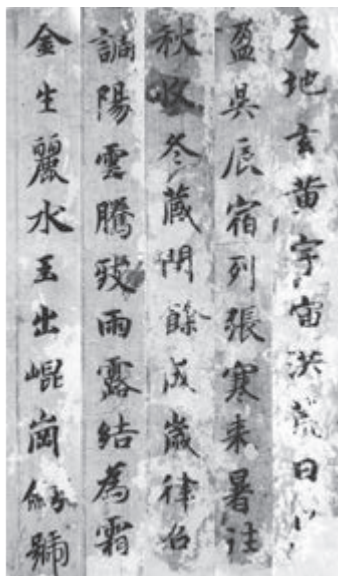 天地玄黄宇宙洪荒日
盈昃辰宿列張寒来暑往
秋收冬藏閏餘成歲律召
調陽雲騰致雨露結為霜
金生麗水玉出崐崗劍號